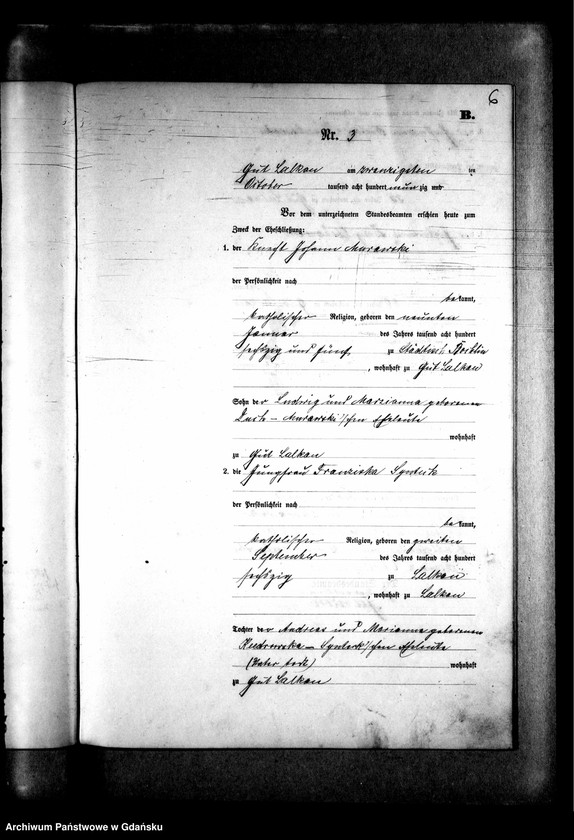 6
B.
Nr. 3
Gut Lalkau am zwanzigsten ten
October tausend acht hundert neun zig und
Vor dem unterzeichneten Standesbeamten erschien heute zum
Zweck der Eheschließung:
1. der Knecht Johann Murawski
der Persönlichkeit nach
bekannt,
katholischer Religion, geboren den neunten
Januar des Jahres tausend acht hundert
sechszig und fünf zu
, wohnhaft zu Gut Lalkau
Sohn der Ludwig und Marianna geborenen
Murawski'schen Eheleute
wohnhaft
zu Gut Lalkau
2. die Jungfrau Franziska
der Persönlichkeit nach
bekannt,
katholischer Religion, geboren den zweiten
September des Jahres tausend acht hundert
sechszig zu Lalkau
, wohnhaft zu Lalkau
Tochter der Andreas und Marianna geborenen
'schen Eheleute
(Vater todt) wohnhaft
zu Gut Lalkau
Archiwum Państwowe w Gdańsku